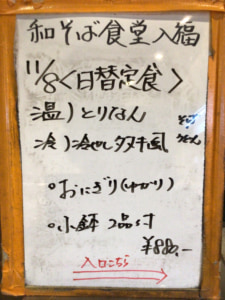 和そば食堂入福
11/8<日替定食>
温)とりなん
冷)冷やしタヌキ風
そば
うどん
○おにぎり(ゆかり)
○小鉢 2品付
¥880.-
入口こちら